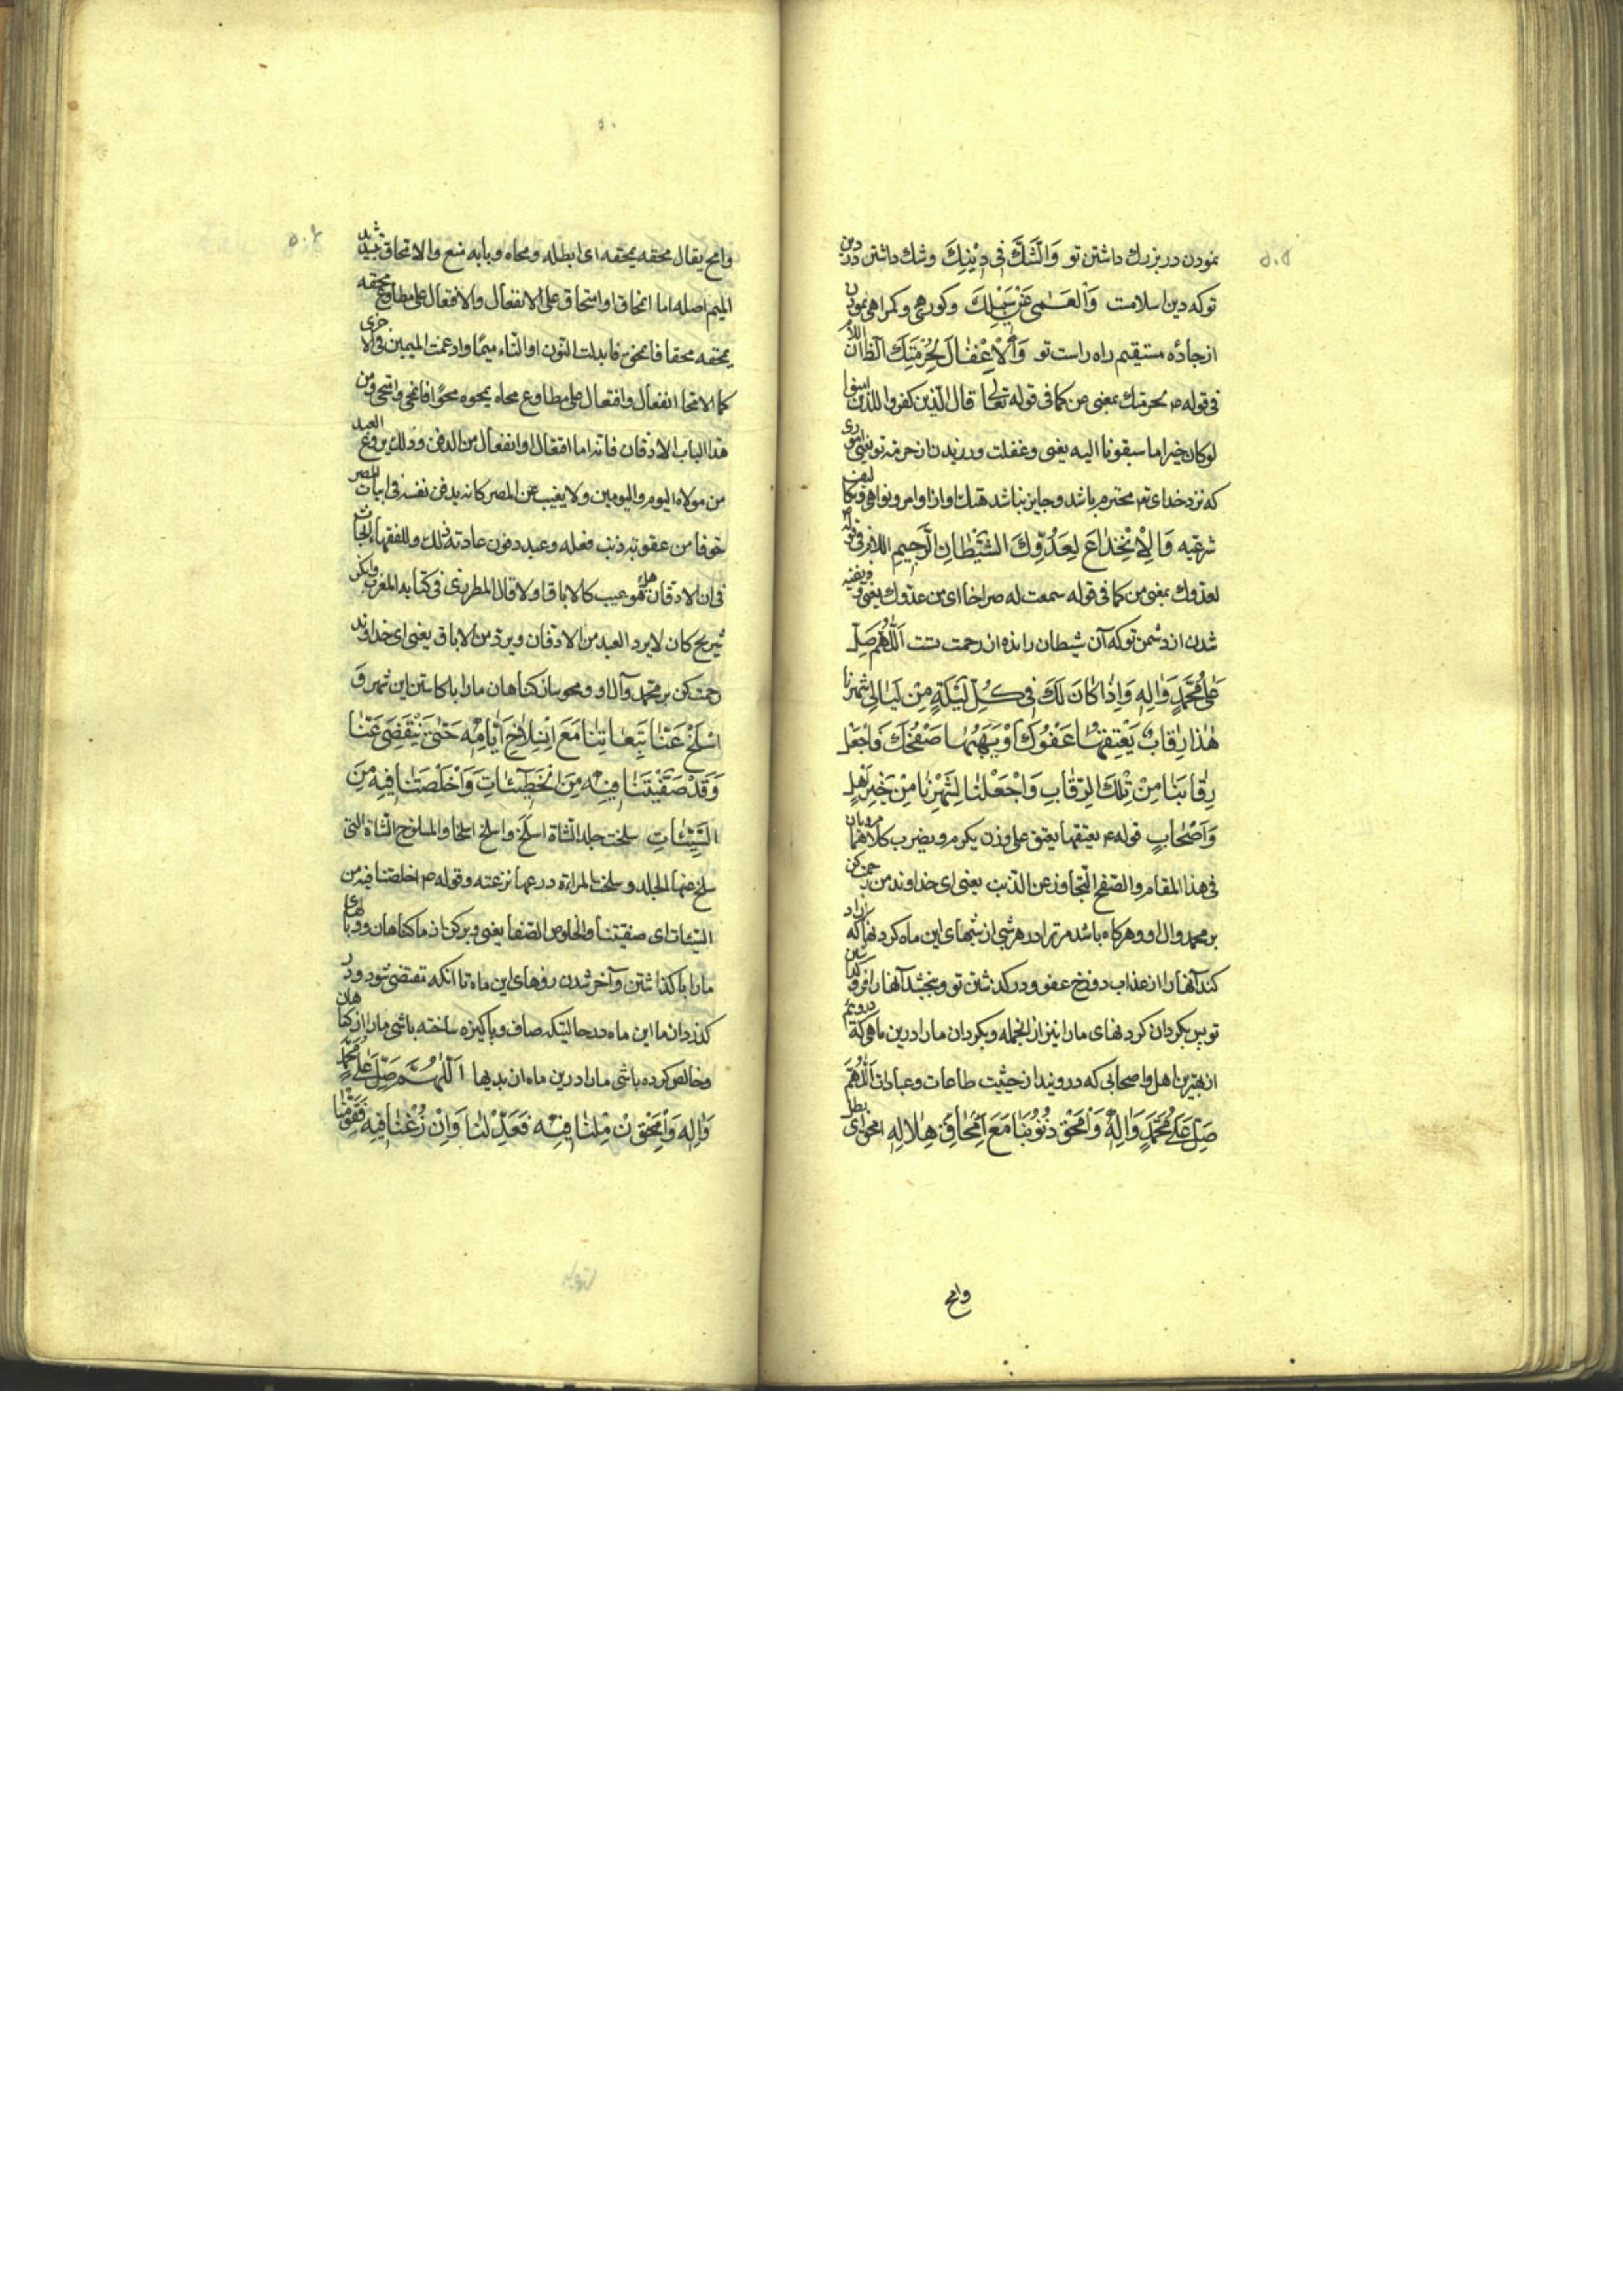 نمودن در بزرك داشتن تو وَالشَّكَّ فی دِیْنِكَ وشك داشتن در دین
تو كه دین اسلامت وَالْعَمٰی عَنْ سَبِیْلِكَ وكورهی وكمراهی نمودن
از جادّه مستقیم راه راست تو وَالْاِغْفٰالَ لِحُرْمَتِكَ الظاان اللام
فی قوله ع لحرمتك بمعنی عن كما فی قوله تعالی قال الذین كفروا للذین امنوا
لو كان خیرا ما سبقونا الیه یعنی وغفلت ورزیدن از حرمة تو یعنی اموری
كه نزد خدای تع محترم باشد وجایز نباشد هتك او از اوامر ونواهی وتكالیف
شرعیه وَالْاِنْخِدٰاعَ لِعَدُوِّكَ الشَّیْطٰانِ الرَّجیمِ اللام فی قوله
لعدوك بمعنی من كما فی قوله سمعت له صراخا ای من عدوك یعنی وفریفته
شدن از دشمن تو كه آن شیطان رانده از رحمت تست اَللّٰهُمَّ صَلِّ
عَلٰی مُحَمَّدٍ وَاٰلِهِ وَاِذٰا كٰانَ لَكَ فی كُلِّ لَیْلَةٍ مِنْ لَیٰالی شَهْرِنٰا
هٰذٰا رِقٰابٌ یُعْتِقُهٰا عَفْوُكَ اَوْ یَهَبُهٰا صَفْحُكَ فَاجْعَلْ
رِقٰابَنٰا مِنْ تِلْكَ الرِّقٰابِ وَاجْعَلْنٰا لِشَهْرِنٰا مِنْ خَیْرِ اَهْلٍ
وَاَصْحٰابٍ قوله ع یعتقها یعتق علی وزن یكرم ویضرب كلاهما مرویان
فی هذا المقام والصّفح التجاوز عن الذنب یعنی ای خداوند من رحمت كن
بر محمد وال او وهركاه باشد مر ترا در هر شبی از شبهای این ماه كردنها كه ازاد
كند آنها را از عذاب دوزخ عفو ودركذشتن تو وببخشد آنها را
تو پس بكردان كردنهای ما را نیز از انجمله وبكردان ما را درین ماهی كه
از بهترین اهل واصحابی كه دروینداز حیثیت طاعات وعبادات اَللّٰهُمَّ
صَلِّ عَلٰی مُحَمَّدٍ وَاٰلِهِ وَامْحَقْ ذُنُوْبَنٰا مَعَ امِّحٰاقِ هِلٰالِهِ امحق ای ابطل
وامح
وامح یقال محقه یمحقه ای ابطله ومحاه وبابه منع والامحاق بتشدید
المیم اصله اما انمحاق او امتحاق علی الانفعال والافتعال علی مطاوع محقه
یمحقه محقا فانمحق فابدلت النون او التاء میمًا وادغمت المیمین فی الاخری
كما الامحا انفعال وافتعال علی مطاوع محاه یمحوه محوًا فانمحی وامتحی ومن
هذا الباب الادفان فانه اما افتعال او انفعال من الدفن وذلك یروغ العبد
من مولاه الیوم والیومین ولا یغیب عن المصر كانه یدفن نفسه فی ابیات المصر
خوفا من عقوبة ذنب فعله وعبد دفون عادته ذلك وللفقهاء
فی ان الادفان هل هو عیب كالاباق او لا قال المطرزی فی كتابه المغرب
شریح كان لا یرد العبد من الادفان ویرد من الاباق یعنی ای خداوند
رحمت كن بر محمد وآل او ومحو ساز كناهان ما را با كاستن این شهر وَ
اسْلَخْ عَنّٰا تَبِعٰاتِنٰا مَعَ انْسِلٰاخِ اَیّٰامِهِ حَتّٰی یَنْقَضِیَ عَنّٰا
وَقَدْ صَفَّیْتَنٰا فِیْهِ مِنَ الْخَطیٓئٰاتِ وَاَخْلَصْتَنٰا فِیْهِ مِنَ
السَّیِّئٰاتِ سلخت جلد الشاة اسلَخ واسلخ اسلخا والمسلوخ الشاة التی
سلخ عنها الجلد وسلخت المراءة درعها نزعته وقوله ع اخلصتنا فیه من
السّیئات ای صفّیتنا والخلوص الصّفا یعنی وبركن از ما كناهان
ما را با كذاشتن وآخر شدن روزهای این ماه تا انكه مقتضی شود ودر
كذردان ما این ماه در حالیتیكه صاف وپاكیزه ساخته باشی ما را از كناهان
وخالص كرده باشی ما را درین ماه از بدیها اَللّٰهُمَّ صَلِّ عَلٰی مُحَمَّدٍ
وَاٰلِهِ وَاِنْ مِلْنٰا فِیْهِ فَعَدِّلْنٰا وَاِنْ زُغْنٰا فِیْهِ فَقَوِّمْنٰا